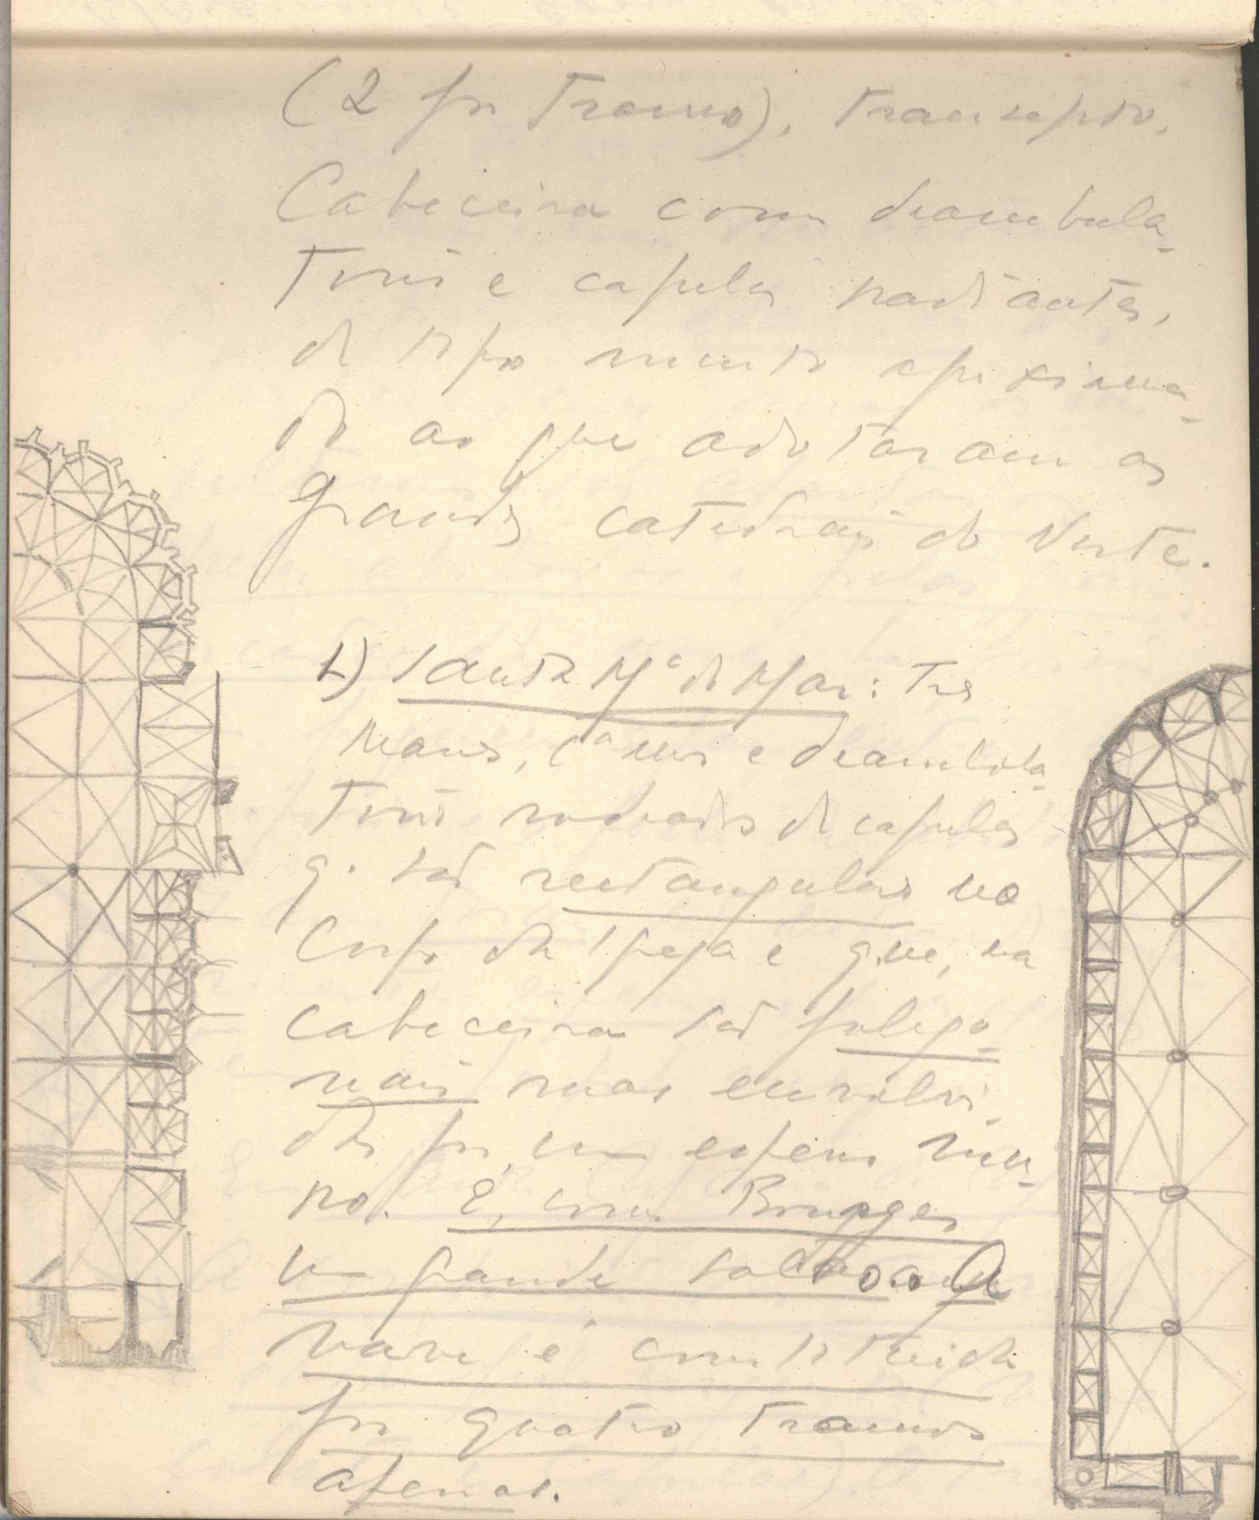 (2 por tramo), transepto.
Cabeceira com deambula-
torio e capelas radiantes,
de tipo muito aproxima-
do ao que adotaram as
grandes catedrais do Norte.
L) Santa Mª do Mar: Tres
naves, e deambula-
torio rodeados de capelas
q. são rectangulares no
corpo da Igreja e que, na
cabeceira são poligo-
nais mas envolvi-
das por um espesso mu-
ro. E, como Bourges
um grande salão. A
nave é constituida
por quatro tramos
apenas.